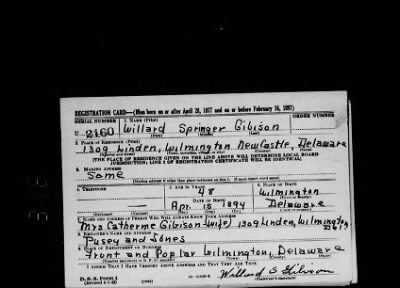 REGISTRATION CARD—(Men born on or after April 28, 1877 and on or before February 16, 1897)
SERIAL NUMBER 1. NAME (Print) ORDER NUMBER
U 2160 Willard Springer Gibison
2. PLACE OF RESIDENCE (Print)
1309 Linden, Wilmington Newcastle, Delaware
[THE PLACE OF RESIDENCE GIVEN ON THE LINE ABOVE WILL DETERMINE LOCAL BOARD
JURISDICTION; LINE 2 OF REGISTRATION CERTIFICATE WILL BE IDENTICAL]
3. MAILING ADDRESS
Same
4. TELEPHONE 5. AGE IN YEARS 6. PLACE OF BIRTH
48 Wilmington
DATE OF BIRTH
Apr. 15 1894 Delaware
7. NAME AND ADDRESS OF PERSON WHO WILL ALWAYS KNOW YOUR ADDRESS
Mrs Catherine Gibison (wife) 1309 Linden, Wilmington
8. EMPLOYER'S NAME AND ADDRESS
Pusey and Jones
9. PLACE OF EMPLOYMENT OR BUSINESS
Front and Poplar Wilmington, Delaware
I AFFIRM THAT I HAVE VERIFIED ABOVE ANSWERS AND THAT THEY ARE TRUE.
D. S. S. Form 1
Willard S Gibison